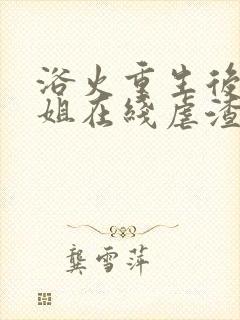 浴火重生後
姐在綫虐渣
龔雪萍